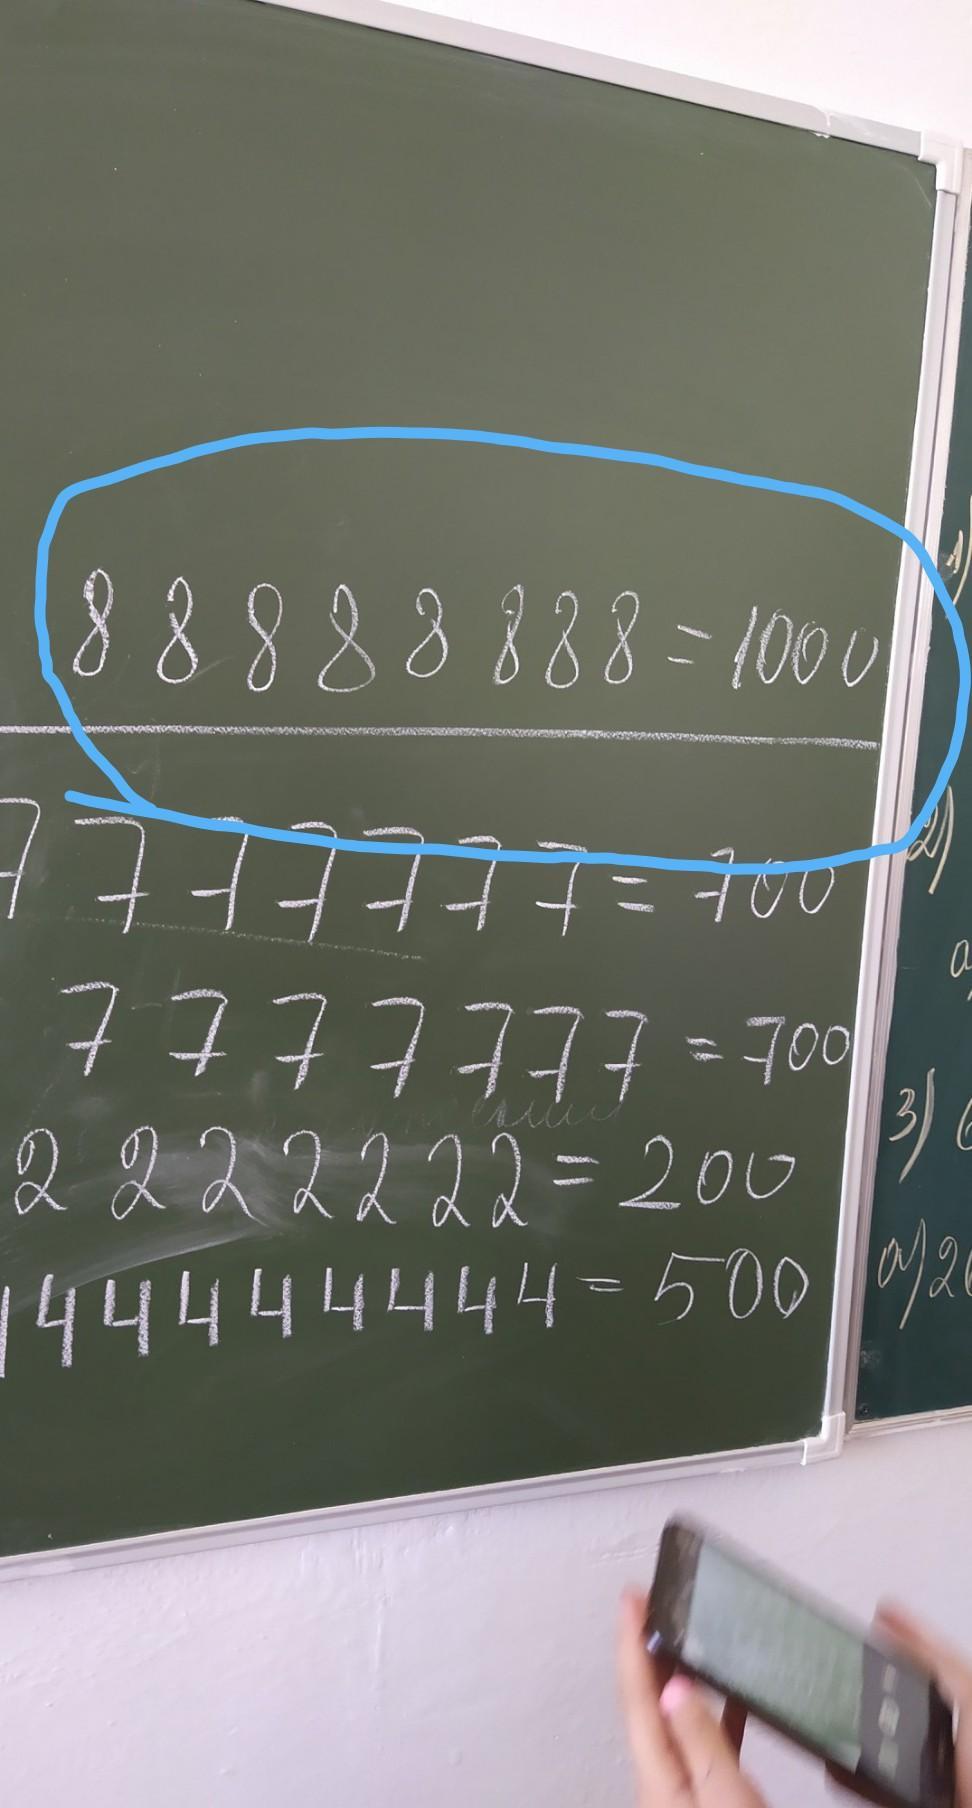 8 8 8 8 8 8 8 8 = 1000
7 7 7 7 7 7 7 = 700
7 7 7 7 7 7 7 = 700
2 2 2 2 2 2 2 = 200
4 4 4 4 4 4 4 4 = 500
1)
2)
a
3)
а) 2